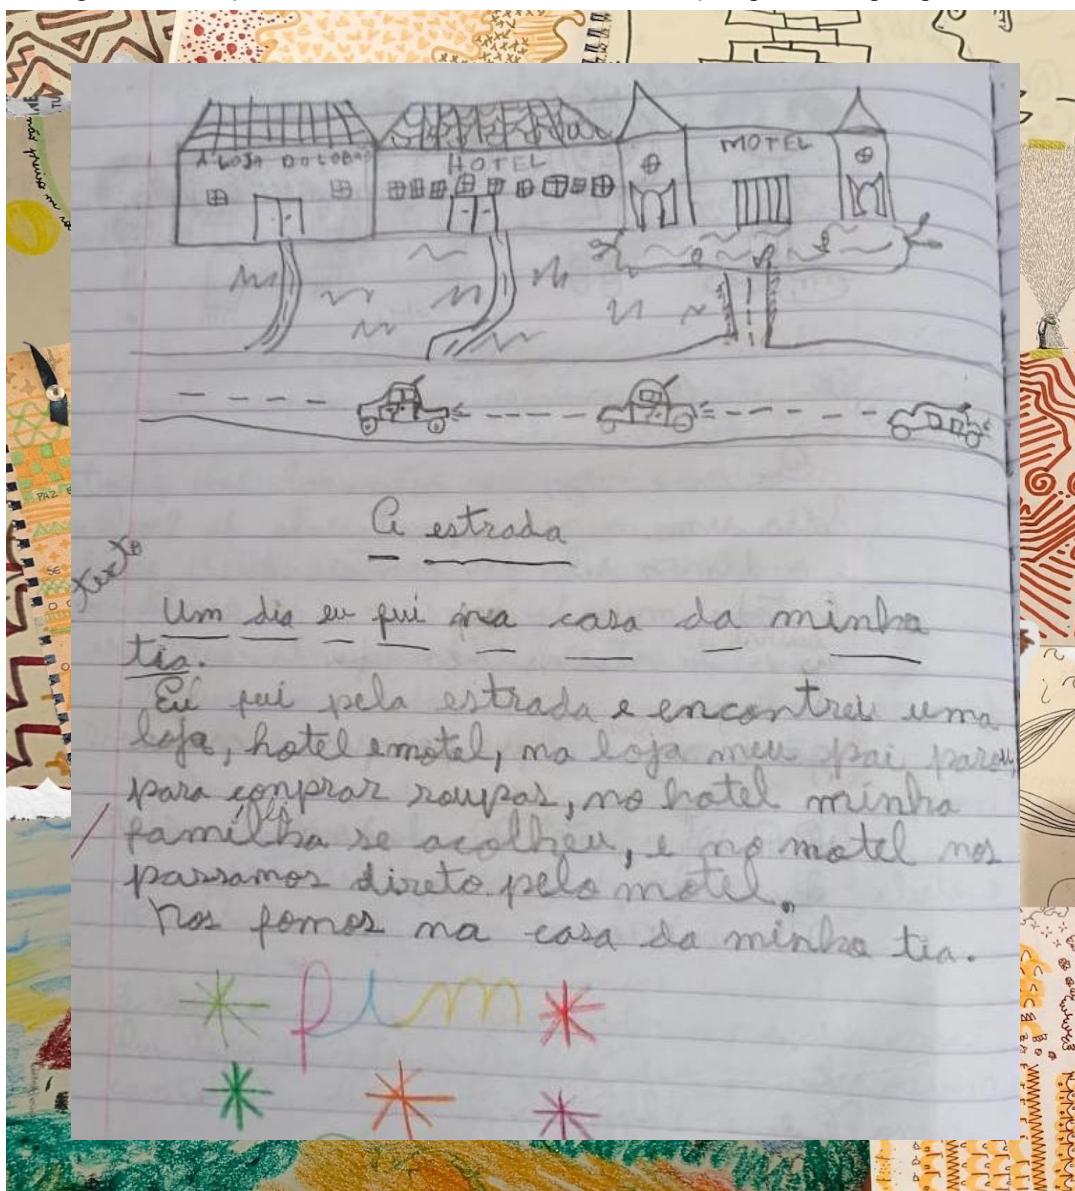 A LOJA DO LOBÃO
HOTEL
MOTEL
A estrada
Texto
Um dia eu fui na casa da minha
tia.
Eu fui pela estrada e encontrei uma
loja, hotel e motel, na loja meu pai parou,
para conprar roupas, no hotel minha
familha se acolheu, e no motel nos
passamos direto pelo motel.
Nos fomos na casa da minha tia.
fim
PAZ
SE